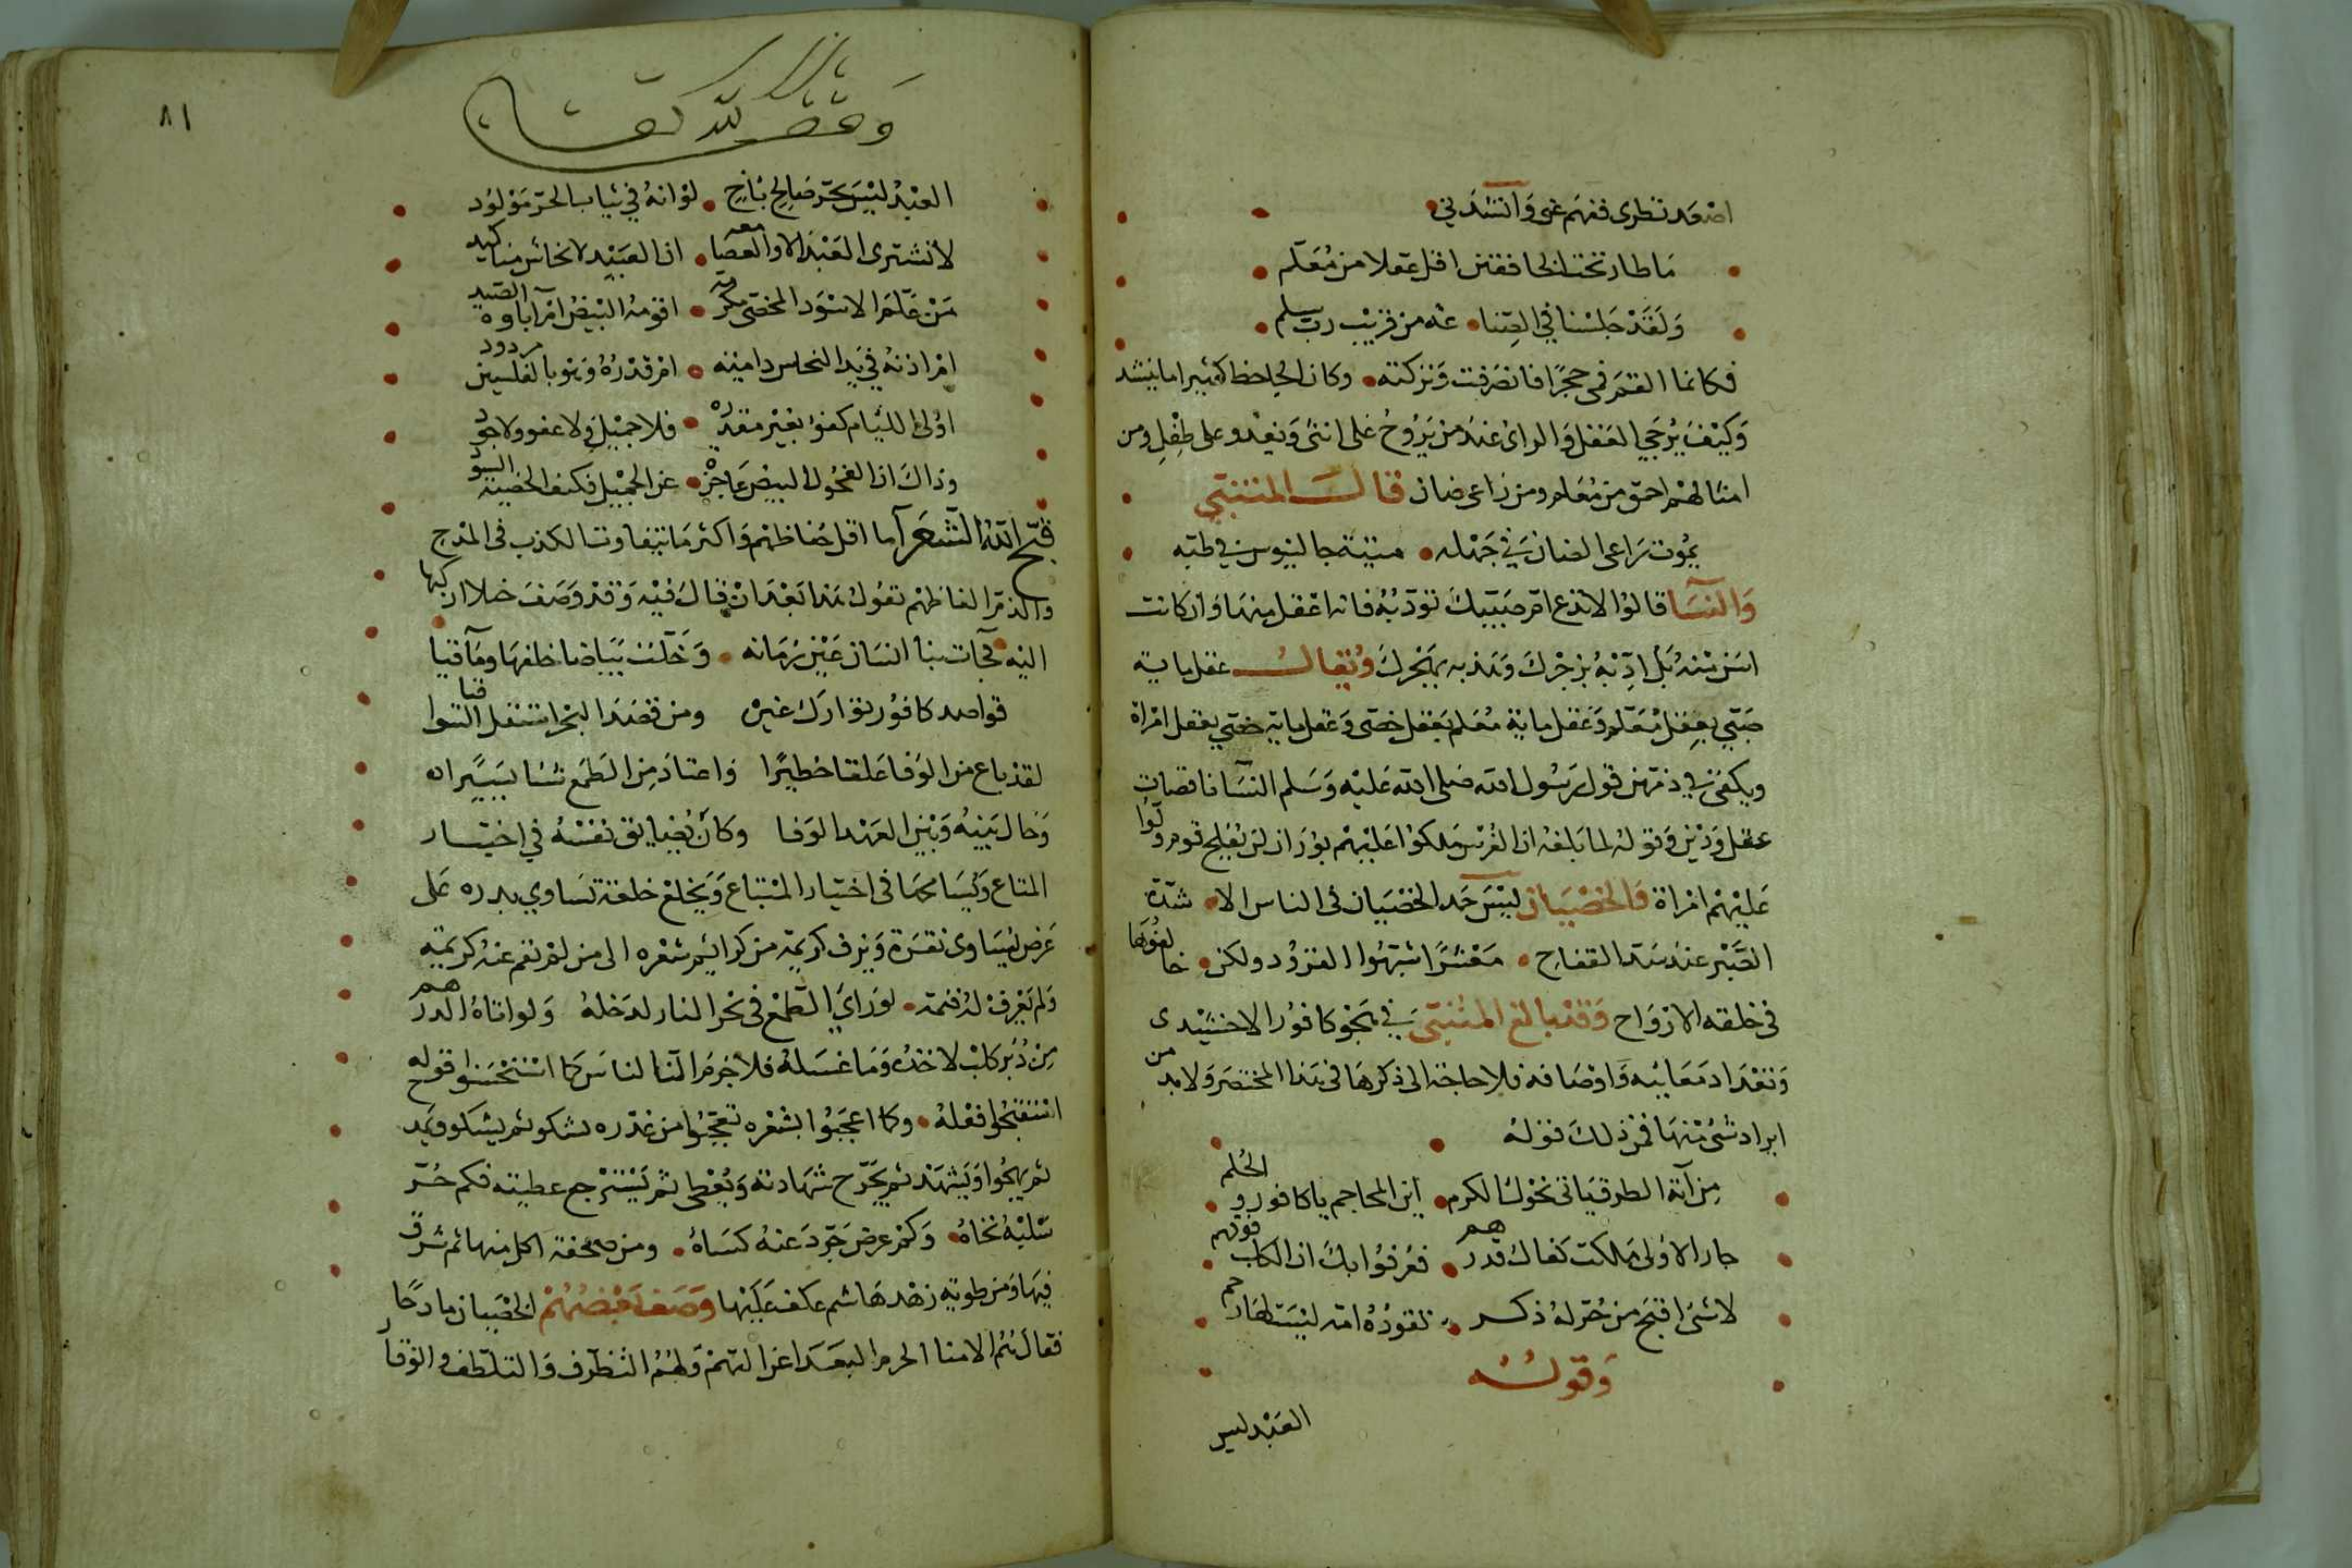 اصعد نظرى ففهم عنى وانشدنى
ما طار تحت الخافقين اقل عقلا من معلم
ولقد جلسنا فى العتنا عنه من قريب رب سلم
فكانما القم فى حجرًا فانصرفت وتركته وكان الجاحظ كثيرا ما ينشد
وكيف يرجى العقل والراى عند من يروح على انثى ويغدو على طفل ومن
امثالهم احمق من معلم ومن راعى ضان قال المتنبى
يموت راعى الضان فى جهله ميتة جالينوس فى طبه
والنسا قالوا لا تدع ام صبيك تودبه فانه اعقل منها وان كانت
اسن منه بل ادبه بزجرك وهذبه بهجرك ويقال عقل ماية
صبى بعقل معلم وعقل ماية معلم بعقل خصى وعقل ماية خصى بعقل امراة
ويكفى فى ذمهن قول رسول الله صلى الله عليه وسلم النسا ناقصات
عقل ودين وقوله لما بلغه ان الفرس ملكوا عليهم بوران لن يفلح قوم ولوا
عليهم امراة والخصيان ليس حمد الخصيان فى الناس الا شدة
الصبر عند القفاح معشرًا اشبهوا القرود ولكن خالفوها
فى خلقه الارواح وقد بالغ المتنبى فى هجو كافور الاخشيدى
وتعداد معايبه واوصافه فلا حاجة الى ذكرها فى هذا المختصر ولا بد من
ايراد شئ منها فمن ذلك قوله
من اية الطرق ياتى نحوك الكرم اين المحاجم يا كافور والجلم
جاز الاولى ملكت كفاك قدرهم فعرفوا بك ان الكلب فوقهم
لا شئ اقبح من حر له ذكر تقوده امة ليست لها رحم
وقوله
العبد ليس
٨١
وقف لله تعالى
العبد ليس بحر صالح باخ لو انه فى ثياب الحر مولود
لا تشترى العبد الا والعصا معه ان العبيد لانجاس مناكيد
من علم الاسود المخصى مكرمة اقومه البيض ام آباوه الصيد
ام اذنه فى يد النخاس دامية ام قدره وهو بالفلسين مردود
اولى اللئام كفو بغير مقدرة فلا جميل ولا عفو ولا جود
وذاك ان الفحول البيض عاجزة عن الجميل فكيف الخصية السود
قبح الله الشعرآ ما اقل حفاظهم واكثر ما يتفاوت الكذب فى المدح
والذم الفاظهم تقول هذا بعد ان قال فيه وقد وصف خيلا اركبها
اليه فجآت بنا انسان عين زمانه وخلت بياضا خلفها ومآقيا
قواصد كافور توارك غيره ومن قصد البحر استقل السواقيا
لقد باع من الوفا علقا خطيرًا واعتاد من الطمع شئا يسيرا
وحال بينه وبين العهد الوفا وكان يضايق نفسه فى اختيار
المتاع ويسامحها فى اختيار المبتاع ويخلع خلعة تساوى بدره على
عرض ليساوى نقرة ويزف كريمة من كرايم شعره الى من لم تقم عنه كريمة
ولم يعرف له قيمة لو راى الطمع فى نحر النار لدخله ولو اتاه الدرهم
من دبر كلب لاخذه وما غسله فلا جرم الناس كما استحسنوا قوله
استقبحوا فعله وكما اعجبوا بشعره تعجبوا من غدره يشكو ثم يشكو ويمد
ثم يهجوا ويشهد ثم يجرح شهادته ويعطى ثم يسترجع عطيته فكم حر
سلبه نخاه وكم عرض جرد عنه كساه ومن صحفة اكل منها ثم شرق
فيها ومن طوية زهد هاشم عكف عليها وصف بعضهم الخصيان مادحًا
فقال هم الامنا الحرم البعدا عن التهم ولهم التظرف والتلطف والوقار